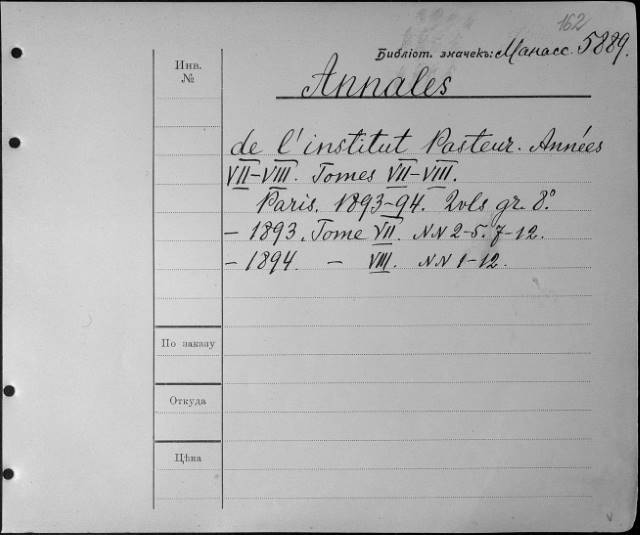 162
Библіот. значекъ: Манасс. 5889.
Инв.
№
Annales
de l'institut Pasteur. Années
VII-VIII. Tomes VII-VIII.
Paris. 1893-94. 2vls gr. 8º
- 1893. Tome VII. NN 2-5. 7-12.
- 1894. - VIII. NN 1-12.
По заказу
Откуда
Цѣна